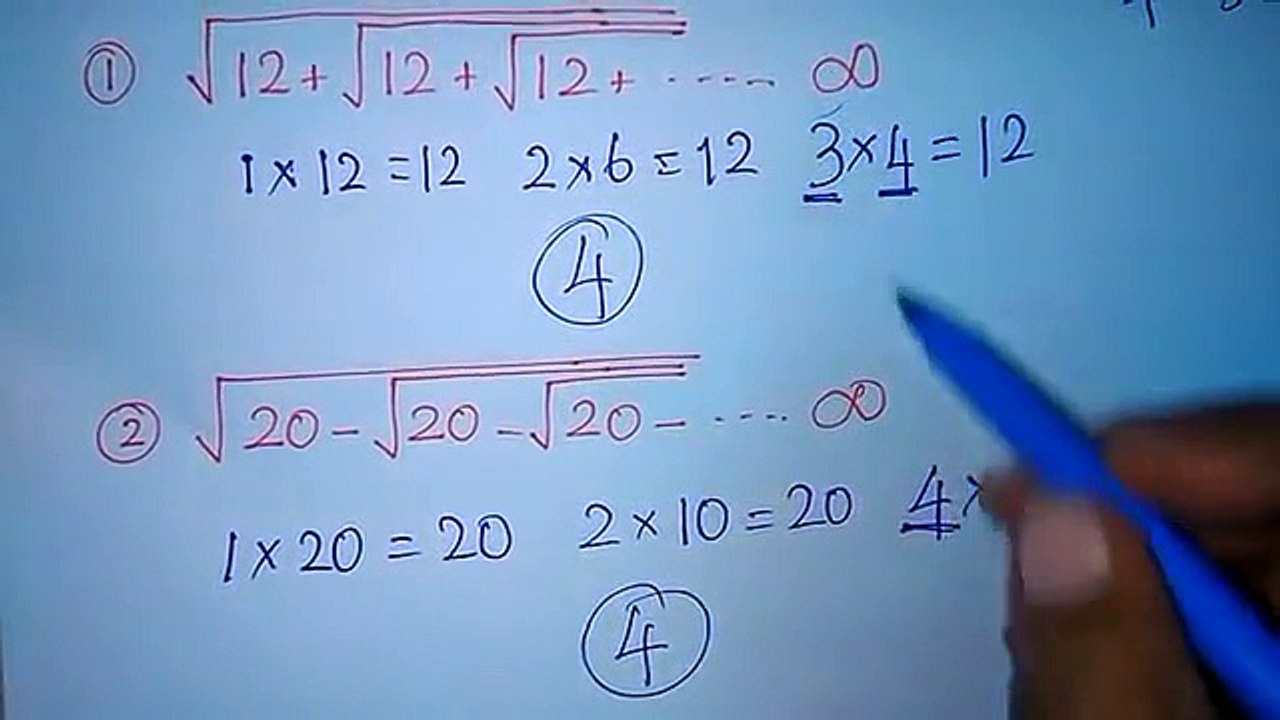 ① √12+√12+√12+ ..... ∞
1 × 12 = 12 2 × 6 = 12 3 × 4 = 12
4
② √20-√20-√20- .... ∞
1 × 20 = 20 2 × 10 = 20 4 ×
4